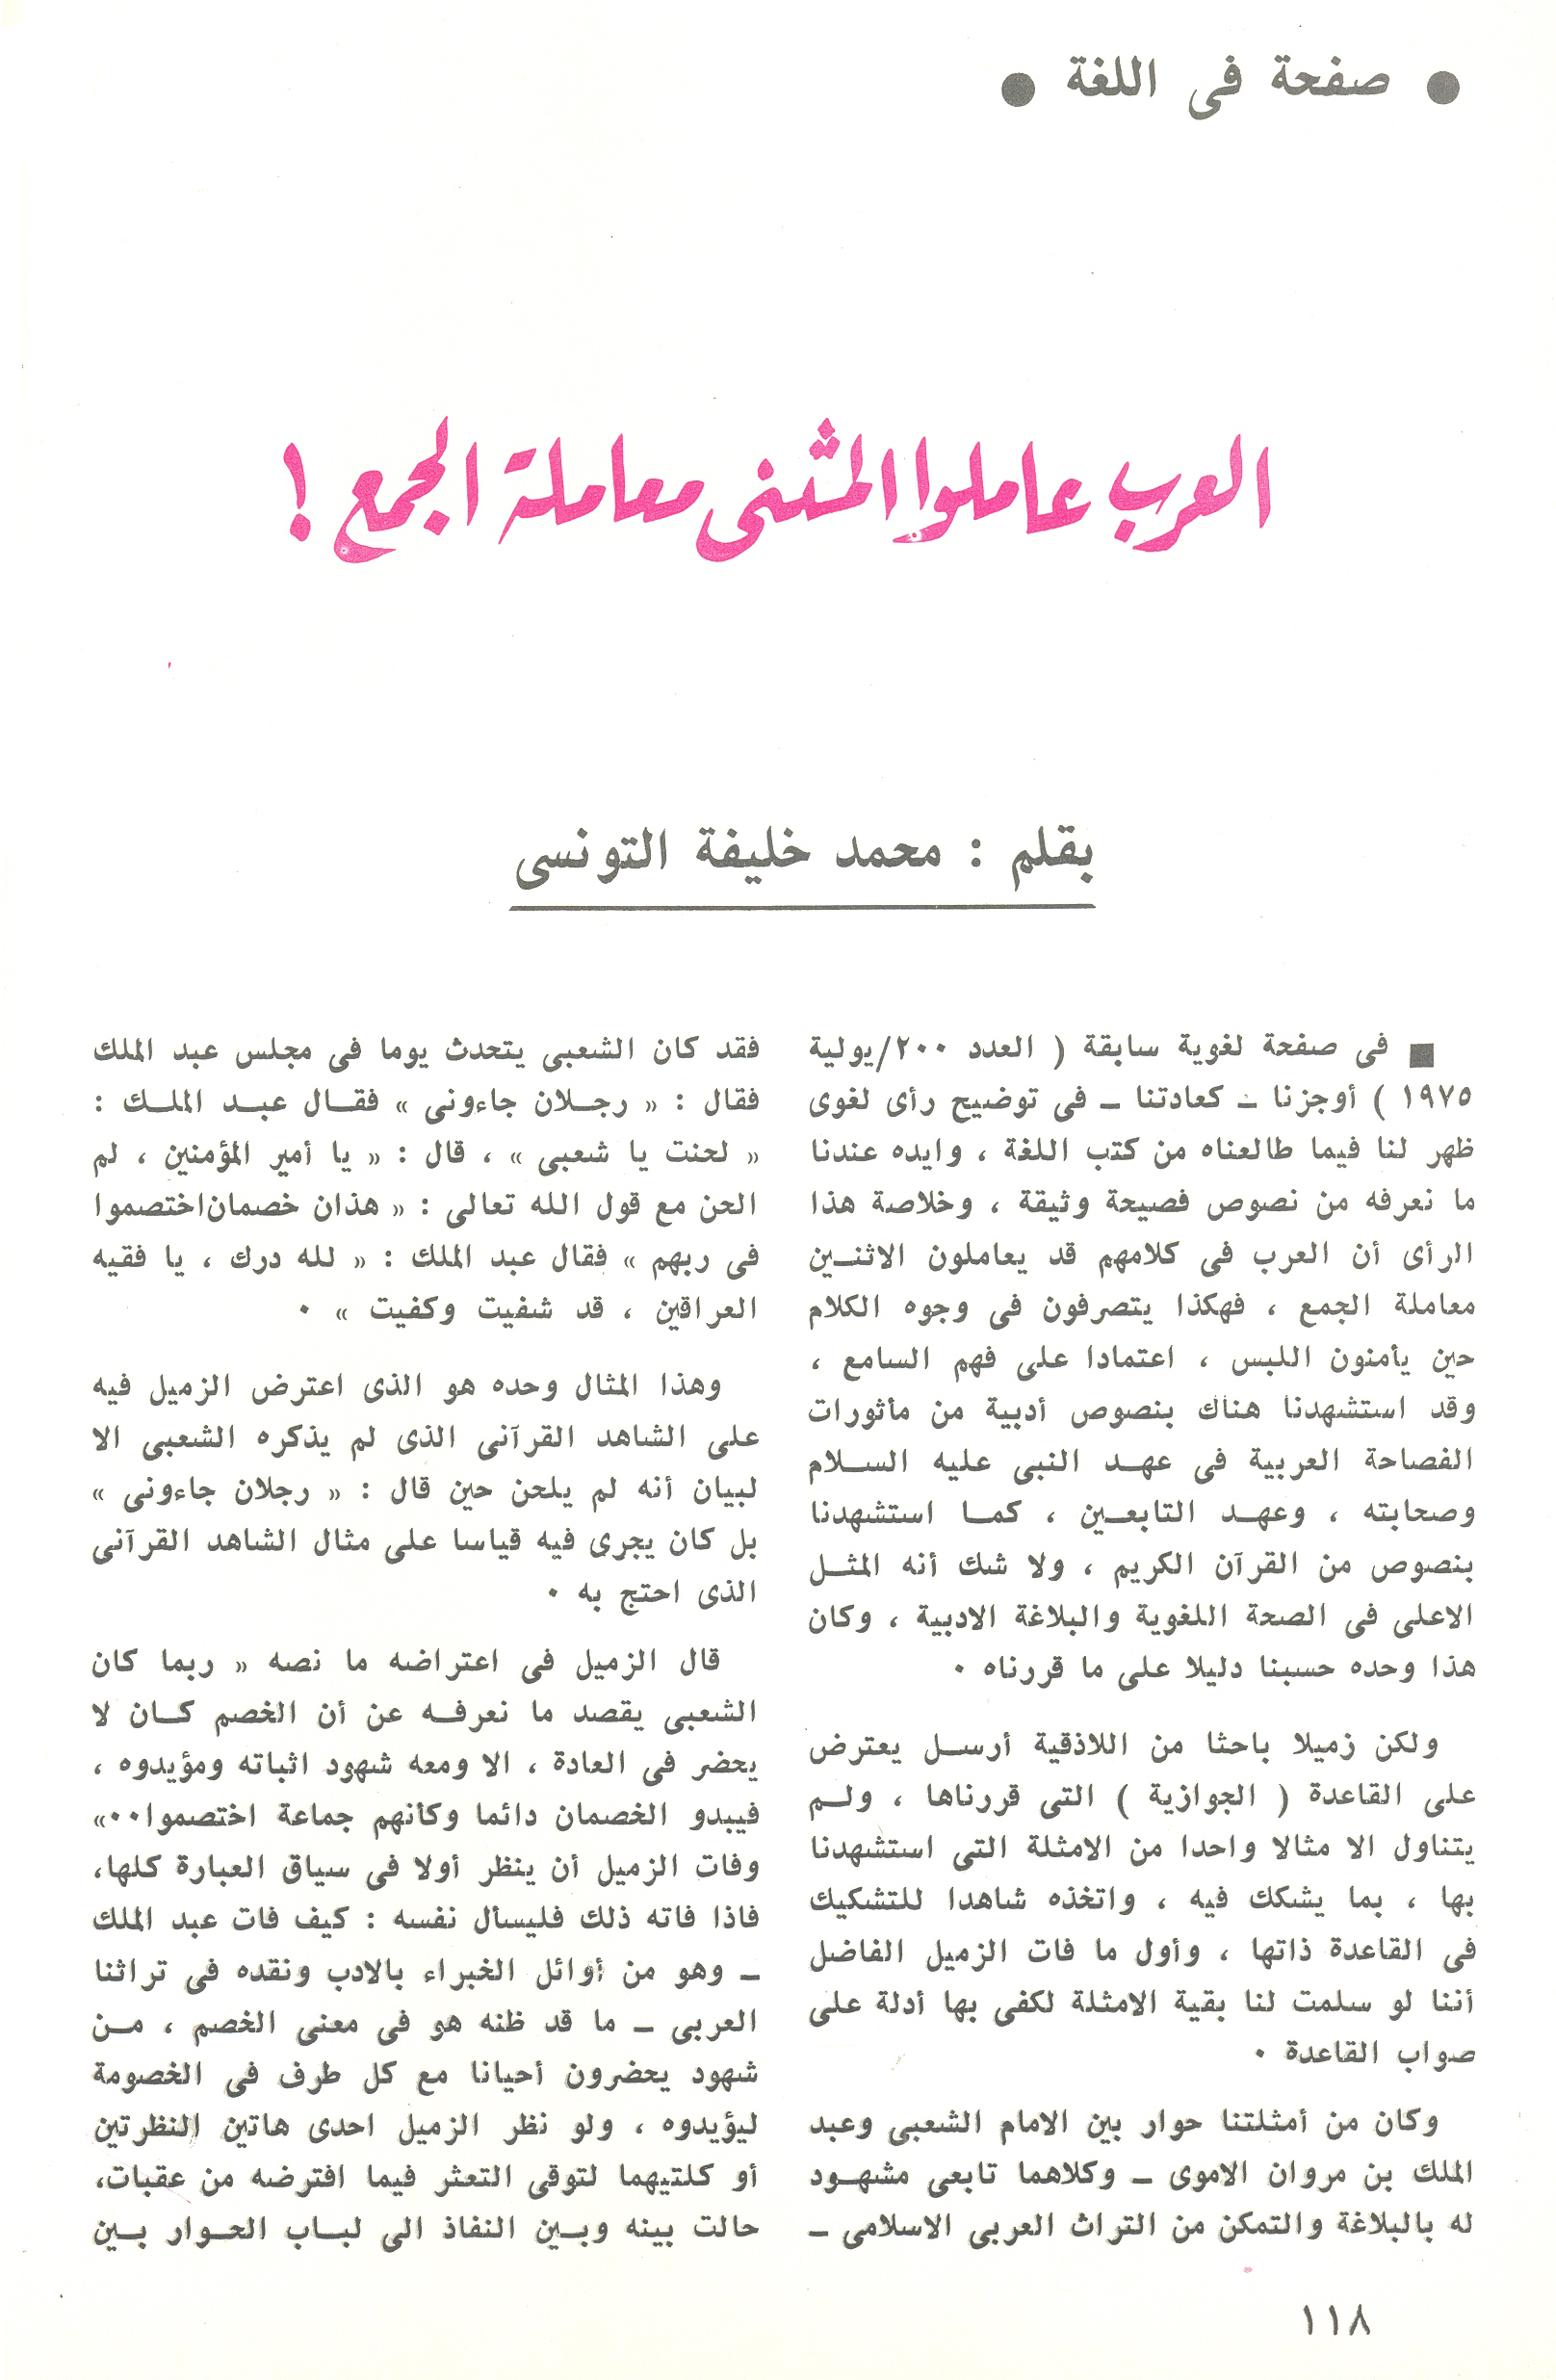 ● صفحة فى اللغة ●
العرب عاملوا المثنى معاملة الجمع !
بقلم : محمد خليفة التونسى
■ فى صفحة لغوية سابقة ( العدد ٢٠٠/يولية
١٩٧٥ ) أوجزنا – كعادتنا – فى توضيح رأى لغوى
ظهر لنا فيما طالعناه من كتب اللغة ، وايده عندنا
ما نعرفه من نصوص فصيحة وثيقة ، وخلاصة هذا
الرأى أن العرب فى كلامهم قد يعاملون الاثنـين
معاملة الجمع ، فهكذا يتصرفون فى وجوه الكلام
حين يأمنون اللبس ، اعتمادا على فهم السامع ،
وقد استشهدنا هناك بنصوص أدبية من مأثورات
الفصاحة العربية فى عهـد النبى عليه السـلام
وصحابته ، وعهـد التابعـين ، كمـا استشهدنا
بنصوص من القرآن الكريم ، ولا شك أنه المثـل
الاعلى فى الصحة اللغوية والبلاغة الادبية ، وكان
هذا وحده حسبنا دليلا على ما قررناه ٠
ولكن زميلا باحثا من اللاذقية أرسـل يعترض
على القاعدة ( الجوازية ) التى قررناها ، ولـم
يتناول الا مثالا واحدا من الامثلة التى استشهدنا
بها ، بما يشكك فيه ، واتخذه شاهدا للتشكيك
فى القاعدة ذاتها ، وأول ما فات الزميل الفاضل
أننا لو سلمت لنا بقية الامثلة لكفى بها أدلة على
صواب القاعدة ٠
وكان من أمثلتنا حوار بين الامام الشعبى وعبد
الملك بن مروان الاموى – وكلاهما تابعى مشهـود
له بالبلاغة والتمكن من التراث العربى الاسلامى –
فقد كان الشعبى يتحدث يوما فى مجلس عبد الملك
فقال : « رجـلان جاءونى » فقـال عبـد الملـك :
« لحنت يا شعبى » ، قال : « يا أمير المؤمنين ، لم
الحن مع قول الله تعالى : « هذان خصمان اختصموا
فى ربهم » فقال عبد الملك : « لله درك ، يا فقيه
العراقين ، قد شفيت وكفيت » ٠
وهذا المثال وحده هو الذى اعترض الزميل فيه
على الشاهد القرآنى الذى لم يذكره الشعبى الا
لبيان أنه لم يلحن حين قال : « رجلان جاءونى »
بل كان يجرى فيه قياسا على مثال الشاهد القرآنى
الذى احتج به ٠
قال الزميل فى اعتراضه ما نصه « ربما كان
الشعبى يقصد ما نعرفـه عن أن الخصم كـان لا
يحضر فى العادة ، الا ومعه شهود اثباته ومؤيدوه ،
فيبدو الخصمان دائما وكأنهم جماعة اختصموا٠٠»
وفات الزميل أن ينظر أولا فى سياق العبارة كلها،
فاذا فاته ذلك فليسأل نفسه : كيف فات عبد الملك
– وهو من أوائل الخبراء بالادب ونقده فى تراثنا
العربى – ما قد ظنه هو فى معنى الخصم ، مـن
شهود يحضرون أحيانا مع كل طرف فى الخصومة
ليؤيدوه ، ولو نظر الزميل احدى هاتين النظرتين
أو كلتيهما لتوقى التعثر فيما افترضه من عقبات،
حالت بينه وبـين النفاذ الى لبـاب الحـوار بـين
١١٨